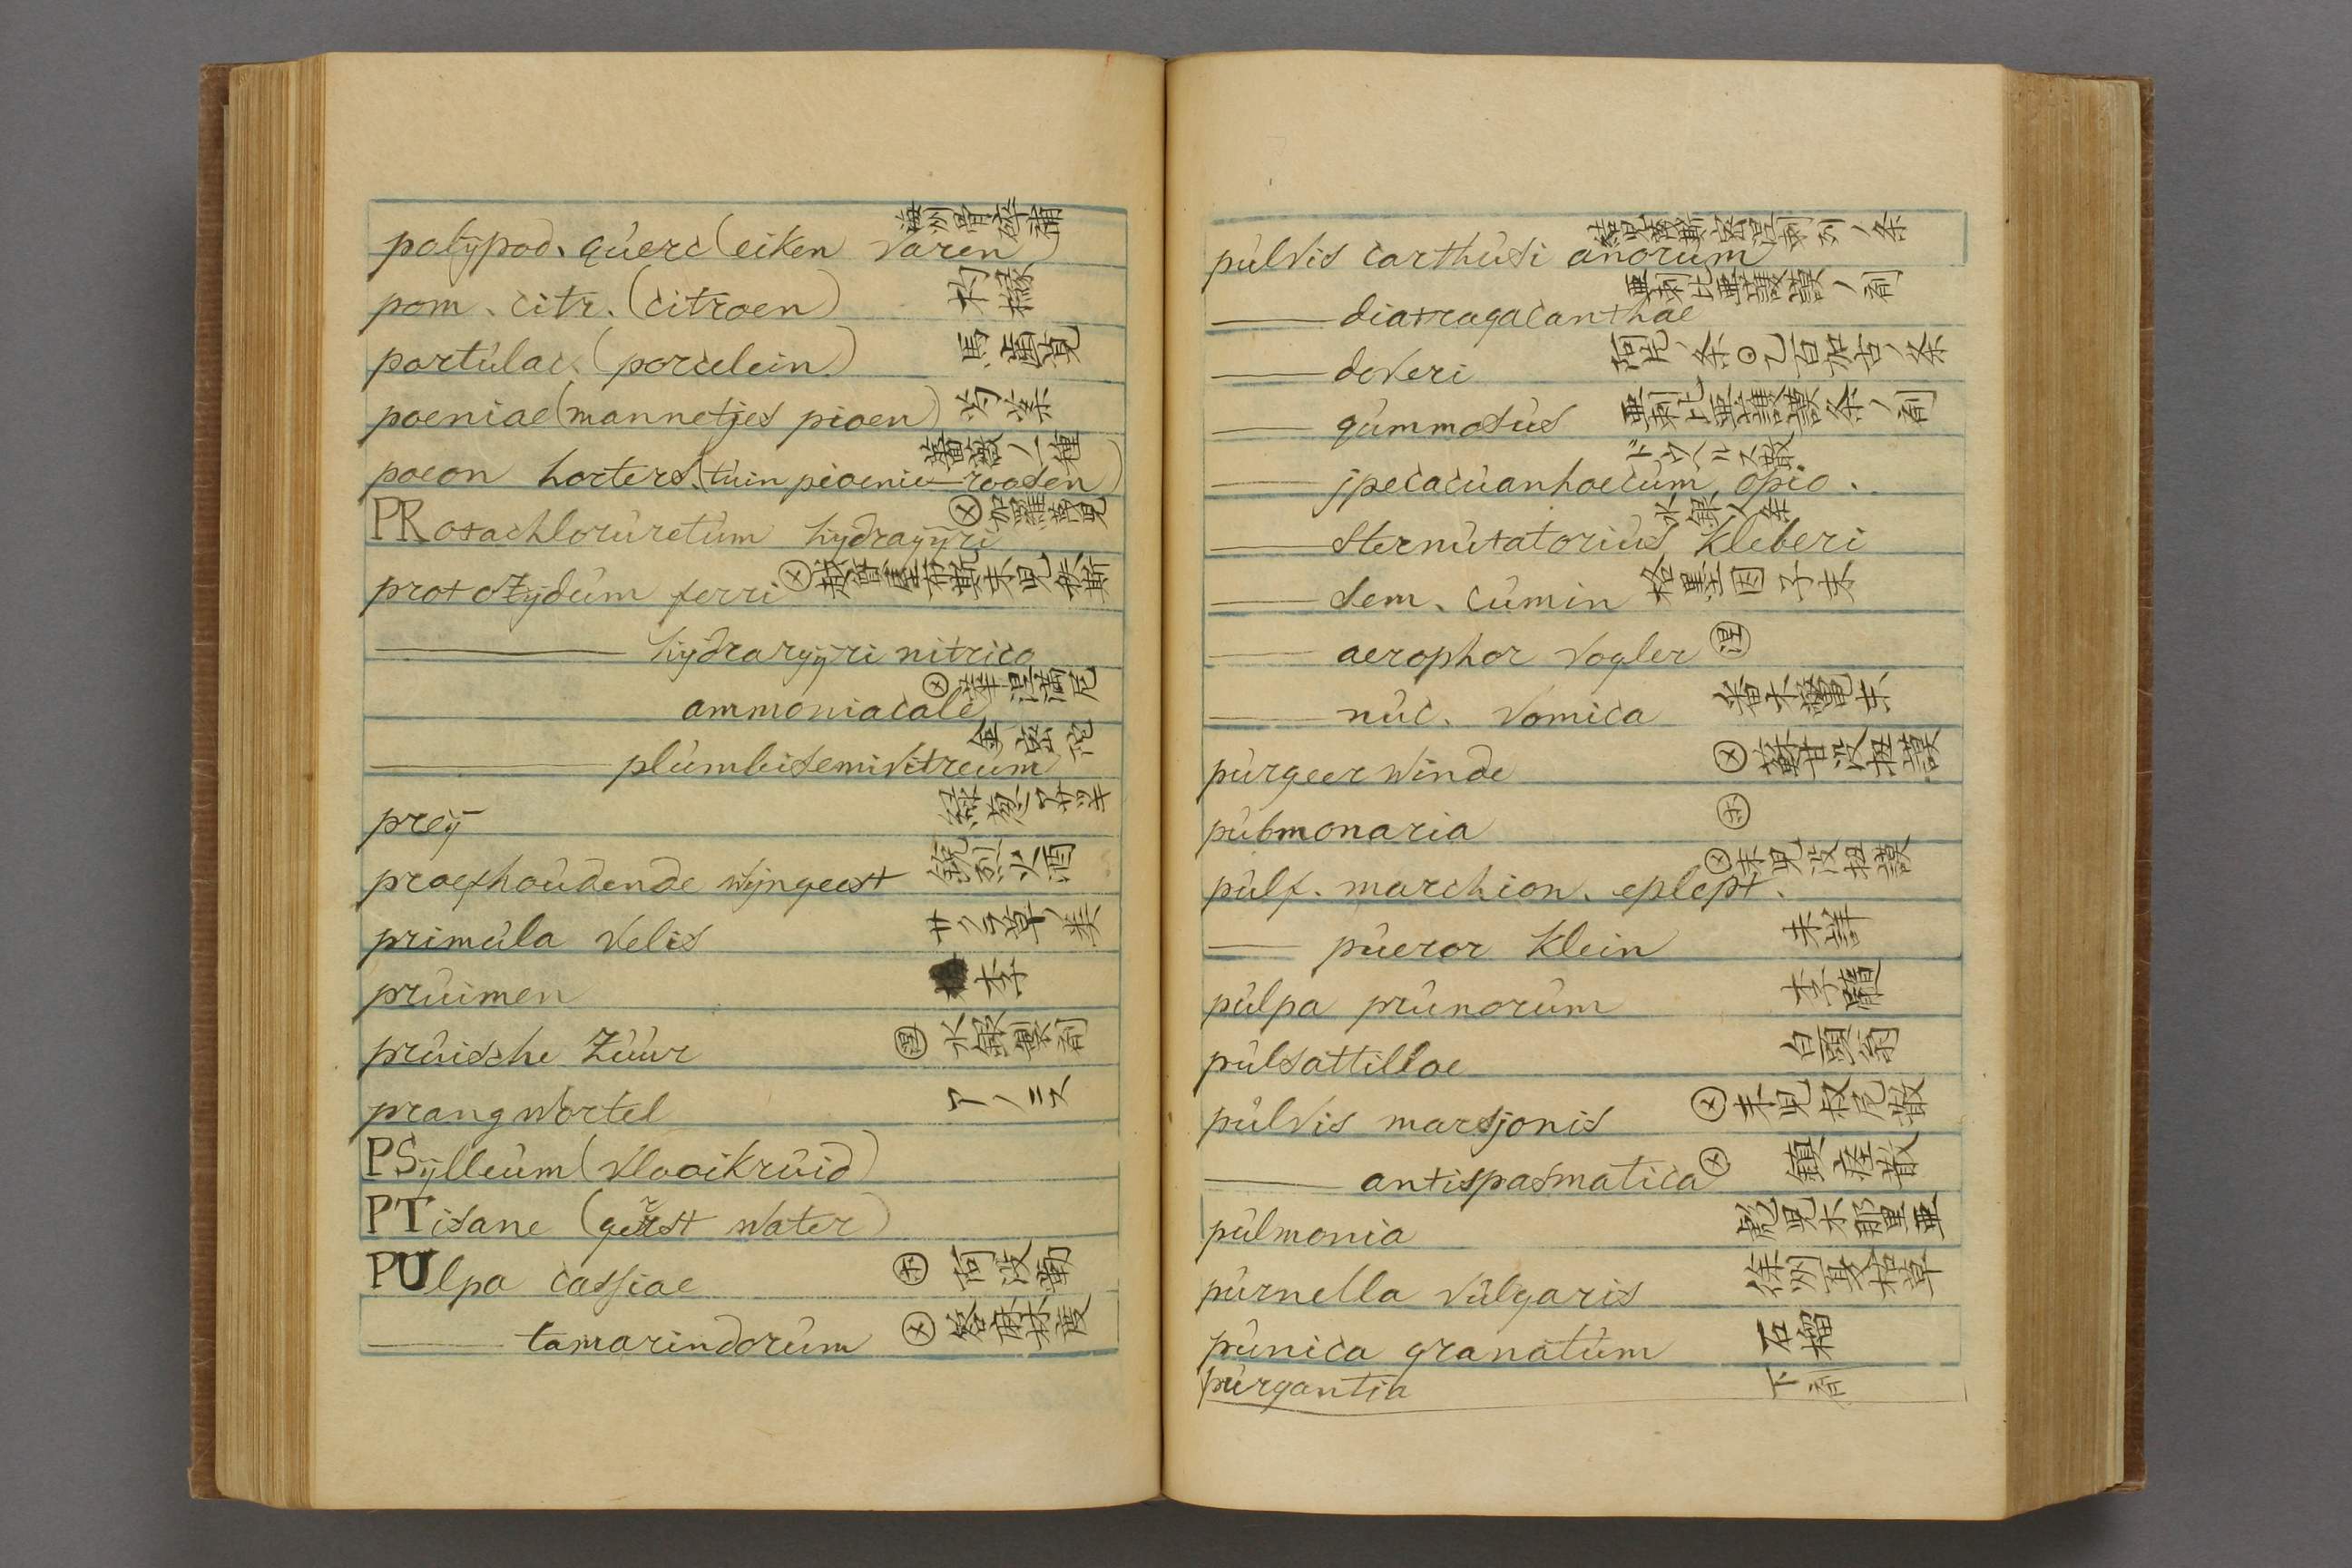 polÿpod. querc (eiken varen) 海州骨砕補
pom. citr. (citroen) 枸櫞
portulac. (porcelein) 馬歯莧
poeniae (mannetjes pioen) 芍薬
poeon hortens. (tuin pioenie—roosen) 薔薇ノ一種
PRotachloruretum hydragÿri
protoxÿdum ferri
——— hÿdrargÿri nitrico
ammoniacale
——— plumbisemivitreum 金密陀
preÿ 緑葱
proefhoudende wijngeest 銃烈火酒
primula velis サクラ草ノ類
pruimen 李
pruissche zuur 涅 水銀製剤
prangwortel アノニス
PSÿlleum (vlooikruid)
PTisane (gerst water)
PUlpa cassiae
——— tamarindorum 答麻林度
pulvis carthusi anorum
——— diatragacanthae 亜刺比亜護謨ノ剤
——— doveri 阿片ノ条 乙百加古ノ条
——— gummosus 亜刺比亜護謨条ノ剤
——— jpecacuanhoecum, opio. ドウヘルス散
——— sternutatorius kleberi 水銀ノ条
——— sem. cumin 格墨因子末
——— aerophor vogler 涅
——— nuc. vomica 番木鼈末
purgeerwinde
pubmonaria
pulf. marchion. eplept.
—— pueror klein 未詳
pulpa prunorum 李髄
pulsattillae 白頭翁
pulvis marsjonis
——— antispasmatica 鎮痙散
pulmonia
purnella vulgaris 徐州夏枯草
punica granatum 石榴
purgantia 下剤